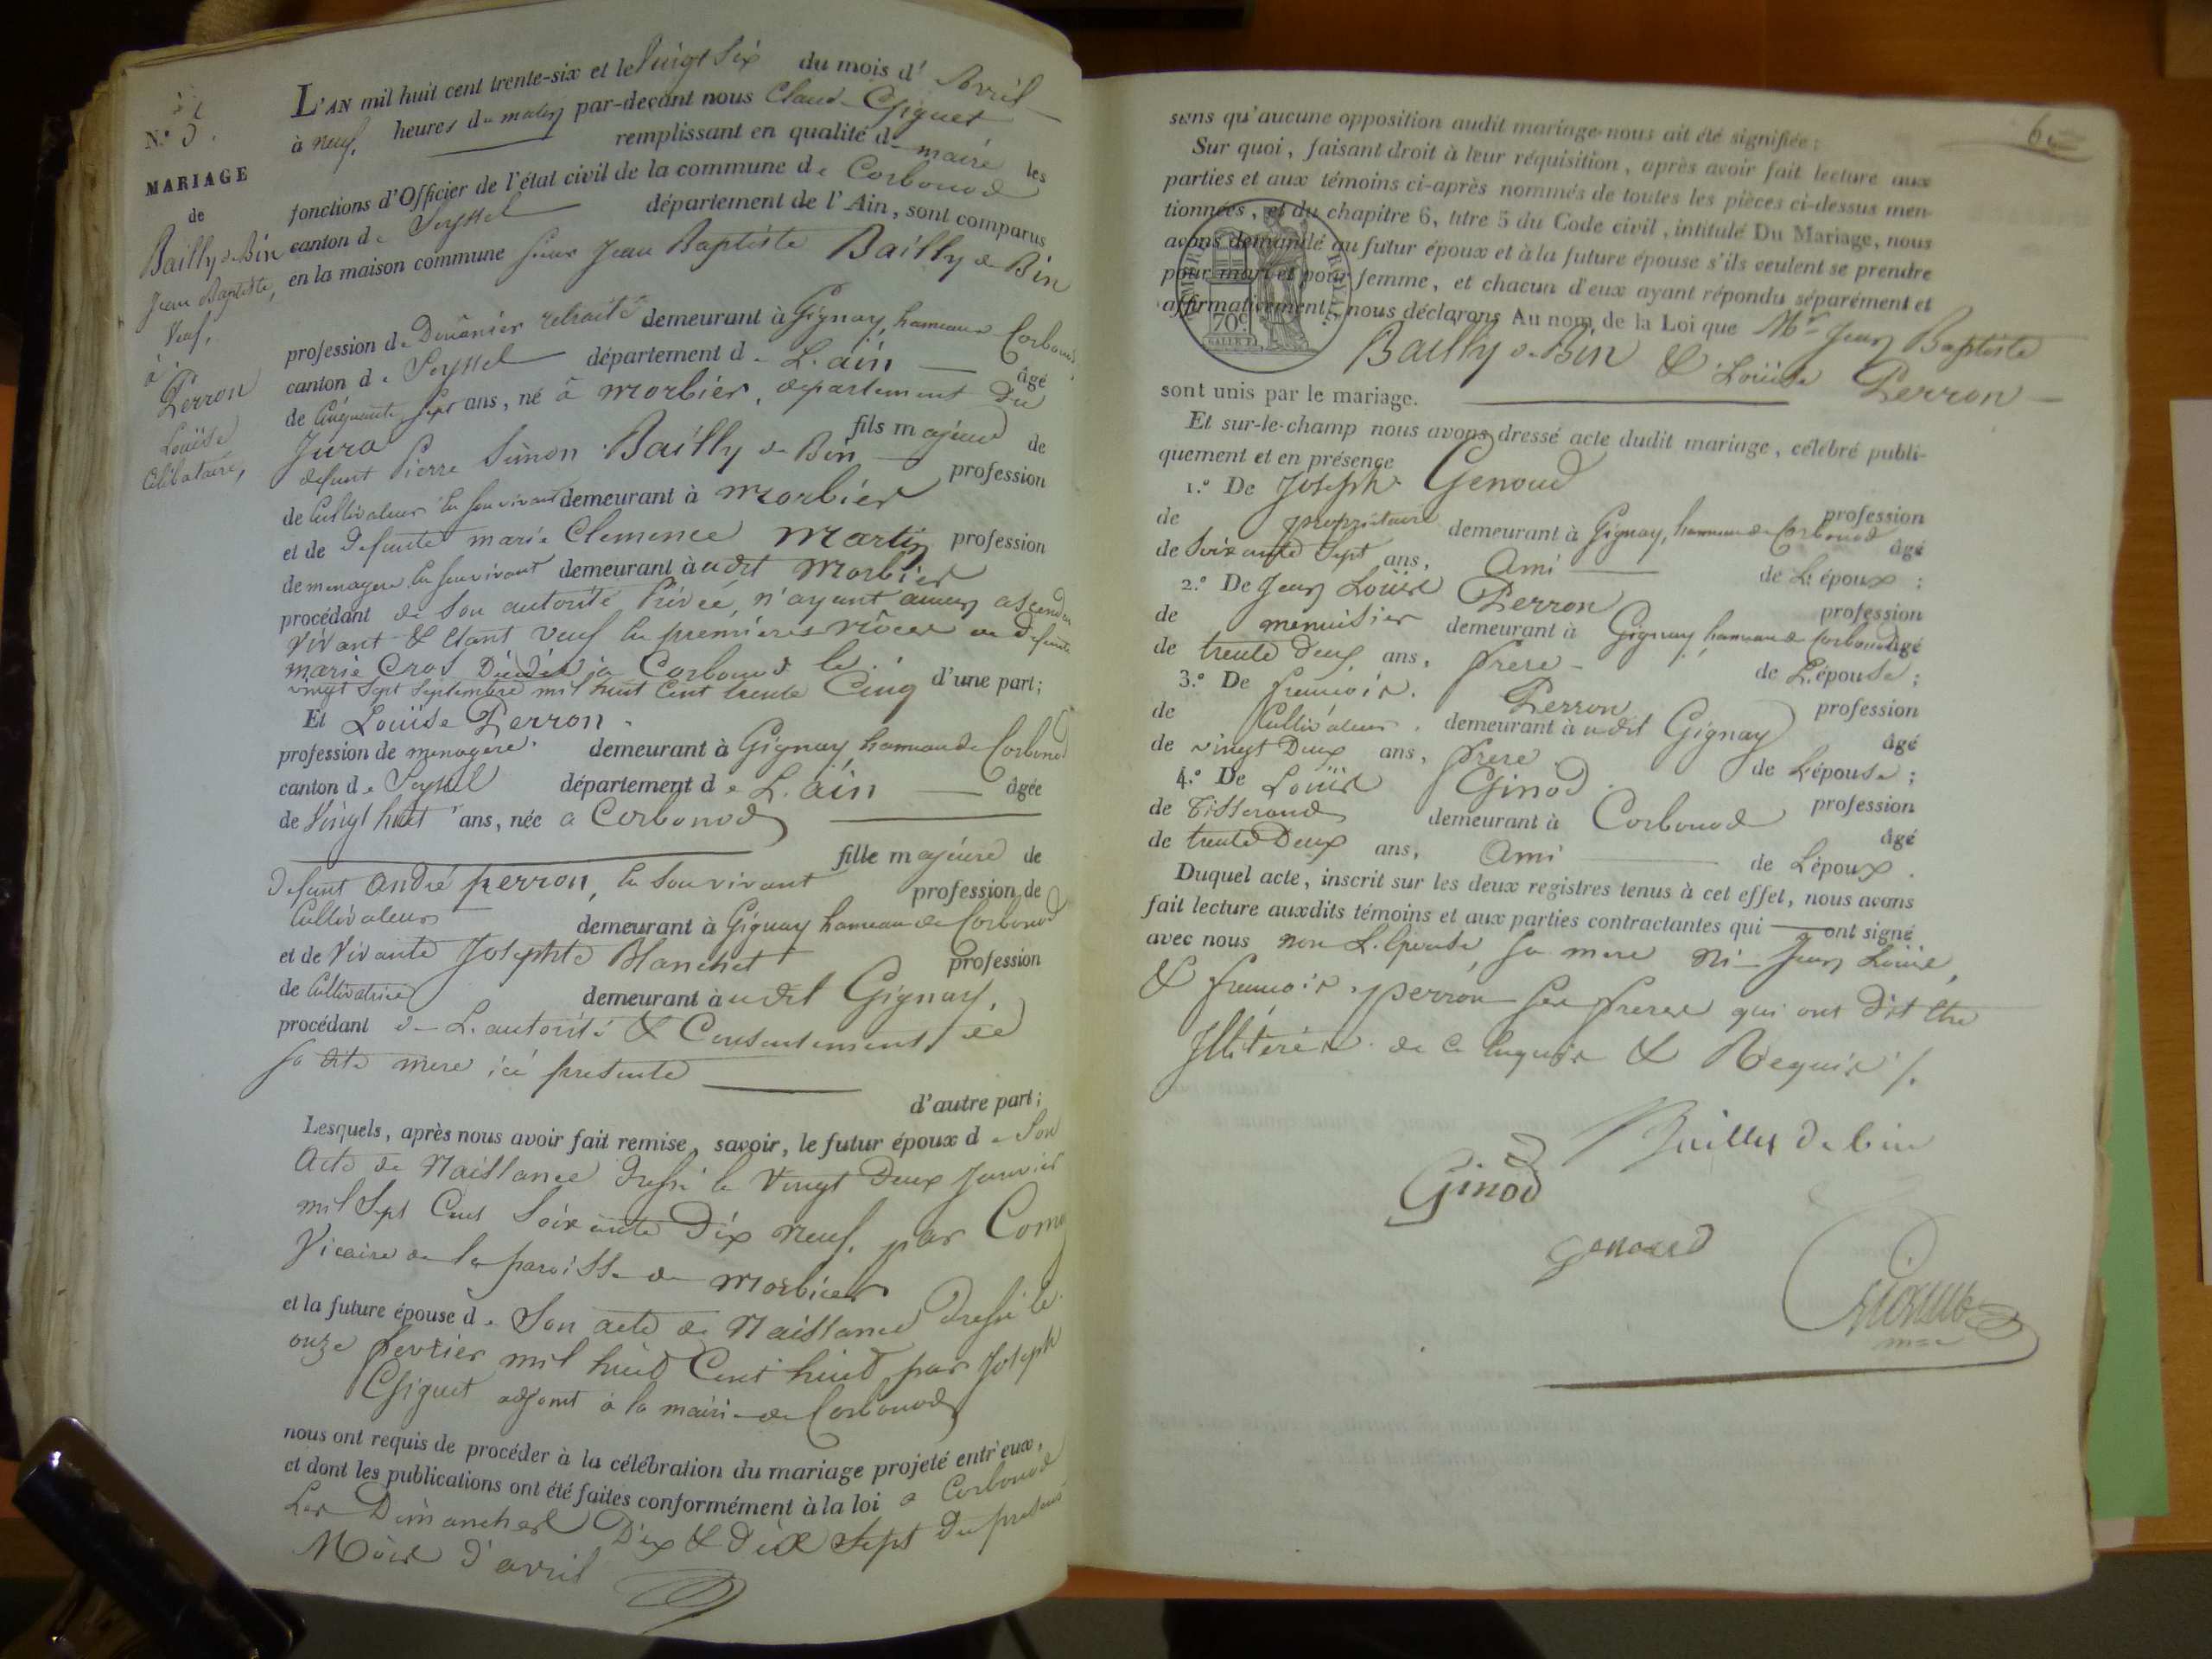 N.° 5.
MARIAGE
de
Bailly de Bin
Jean Baptiste,
Veuf,
à
Perron
Louïse
Célibataire,
L'AN mil huit cent trente-six et le Vingt Six du mois d' Avril
à neuf heures du matin par-devant nous Claude Giguet
remplissant en qualité de maire les
fonctions d'Officier de l'état civil de la commune de Corbonod
canton de Seyssel département de l'Ain, sont comparus
en la maison commune Sieur Jean Baptiste Bailly de Bin
profession de Douanier retraité demeurant à Gignay, hameau de Corbonod
canton de Seyssel département de L'ain âgé
de Cinquante Sept ans, né à Morbier, département du
Jura fils majeur de
défunt Pierre Simon Bailly de Bin profession
de Cultivateur en son vivant demeurant à Morbier
et de défunte marie Clemence Martin profession
de menagere en son vivant demeurant à udit Morbier
procédant de Son autorité Privée, n'ayant aucun ascendant
vivant & étant veuf en premieres nôces de defunte
marie Cros Décédée à Corbonod le
vingt Sept Septembre mil huit Cent trente Cinq d'une part;
Et Louïse Perron
profession de menagere demeurant à Gignay hameau de Corbonod
canton de Seyssel département de L'ain âgée
de Vingt huit ans, née a Corbonod
fille majeure de
Defunt André perron, en Son vivant profession de
Cultivateur demeurant à Gignay hameau de Corbonod
et de Vivante Josephte Blanchet profession
de Cultivatrice demeurant à udit Gignay,
procédant de L'autorité & Consentement de
Sa dite mere ici presente
d'autre part;
Lesquels, après nous avoir fait remise, savoir, le futur époux de Son
Acte de Naissance dressé le Vingt Deux Janvier
mil Sept Cent Soixante Dix Neuf, par
Vicaire de la paroisse de Morbier
et la future épouse de Son acte de Naissance dressé le
onze fevrier mil huit Cent huit par Joseph
Giguet adjoint à la mairie de Corbonod
nous ont requis de procéder à la célébration du mariage projeté entr'eux,
et dont les publications ont été faites conformément à la loi a Corbonod
Les Dimanches Dix & dix Sept du present
Mois d'avril
6
sans qu'aucune opposition audit mariage nous ait été signifiée;
Sur quoi, faisant droit à leur réquisition, après avoir fait lecture aux
parties et aux témoins ci-après nommés de toutes les pièces ci-dessus men-
tionnées, et du chapitre 6, titre 5 du Code civil, intitulé Du Mariage, nous
avons demandé au futur époux et à la future épouse s'ils veulent se prendre
pour mari et pour femme, et chacun d'eux ayant répondu séparément et
affirmativement, nous déclarons Au nom de la Loi que Mr Jean Baptiste
70c
Bailly de Bin & Louïse Perron
sont unis par le mariage.
Et sur-le-champ nous avons dressé acte dudit mariage, célébré publi-
quement et en présence
1.° De Joseph Genoud profession
de propriétaire demeurant à Gignay, hameau de Corbonod âgé
de Soixante Sept ans, Ami de L'époux;
2.° De Jean Louis Perron profession
de menuisier demeurant à Gignay, hameau de Corbonod âgé
de trente Deux ans, frere de L'épouse;
3.° De francois Perron profession
de Cultivateur demeurant à udit Gignay âgé
de vingt Deux ans, frere de L'épouse;
4.° De Louis Ginod profession
de Tisserand demeurant à Corbonod âgé
de trente Deux ans, Ami de L'époux.
Duquel acte, inscrit sur les deux registres tenus à cet effet, nous avons
fait lecture auxdits témoins et aux parties contractantes qui ont signé
avec nous non L'épouse, sa mere ni Jean Louis,
& francois perron Ses freres qui ont dit être
Illitérés de ce enquis & Requis /.
Bailly de bin
Ginod
genoud
Giguet